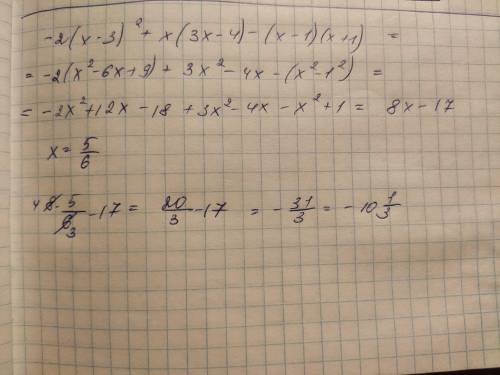 -2(x-3)² + x(3x-4) - (x-1)(x+1) =
= -2(x²-6x+9) + 3x² - 4x - (x²-1²) =
= -2x²+12x-18+3x²-4x-x²+1 = 8x-17
x = 5/6
4 8·5/6 3 -17 = 20/3 -17 = -31/3 = -10 1/3